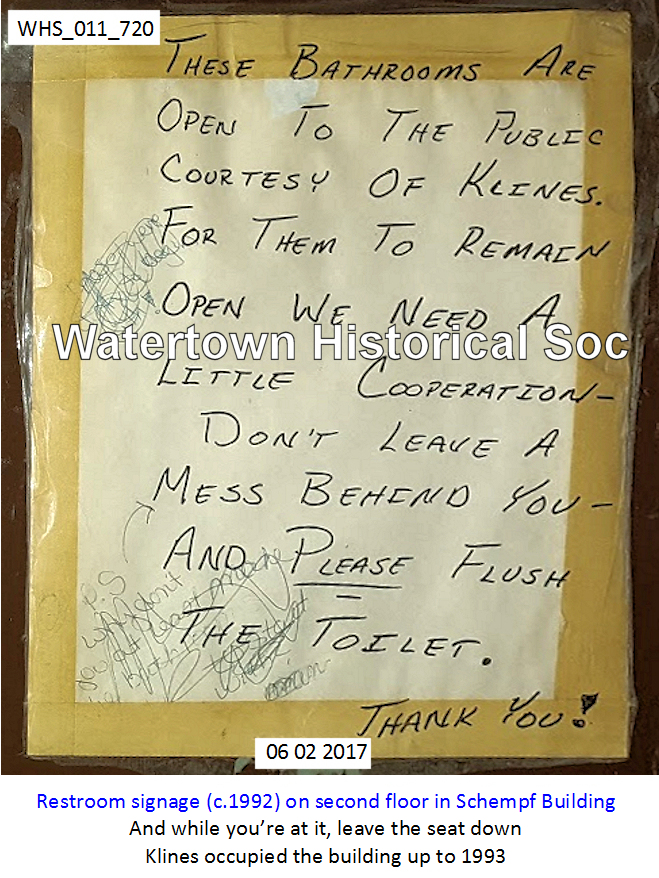 WHS_011_720
THESE BATHROOMS ARE
OPEN TO THE PUBLIC
COURTESY OF KLINES.
FOR THEM TO REMAIN
OPEN WE NEED A
Watertown Historical Soc
LITTLE COOPERATION-
DON'T LEAVE A
MESS BEHIND YOU-
AND PLEASE FLUSH
THE TOILET.
THANK YOU!
P.S
why don't
you at least
06 02 2017
Restroom signage (c.1992) on second floor in Schempf Building
And while you're at it, leave the seat down
Klines occupied the building up to 1993